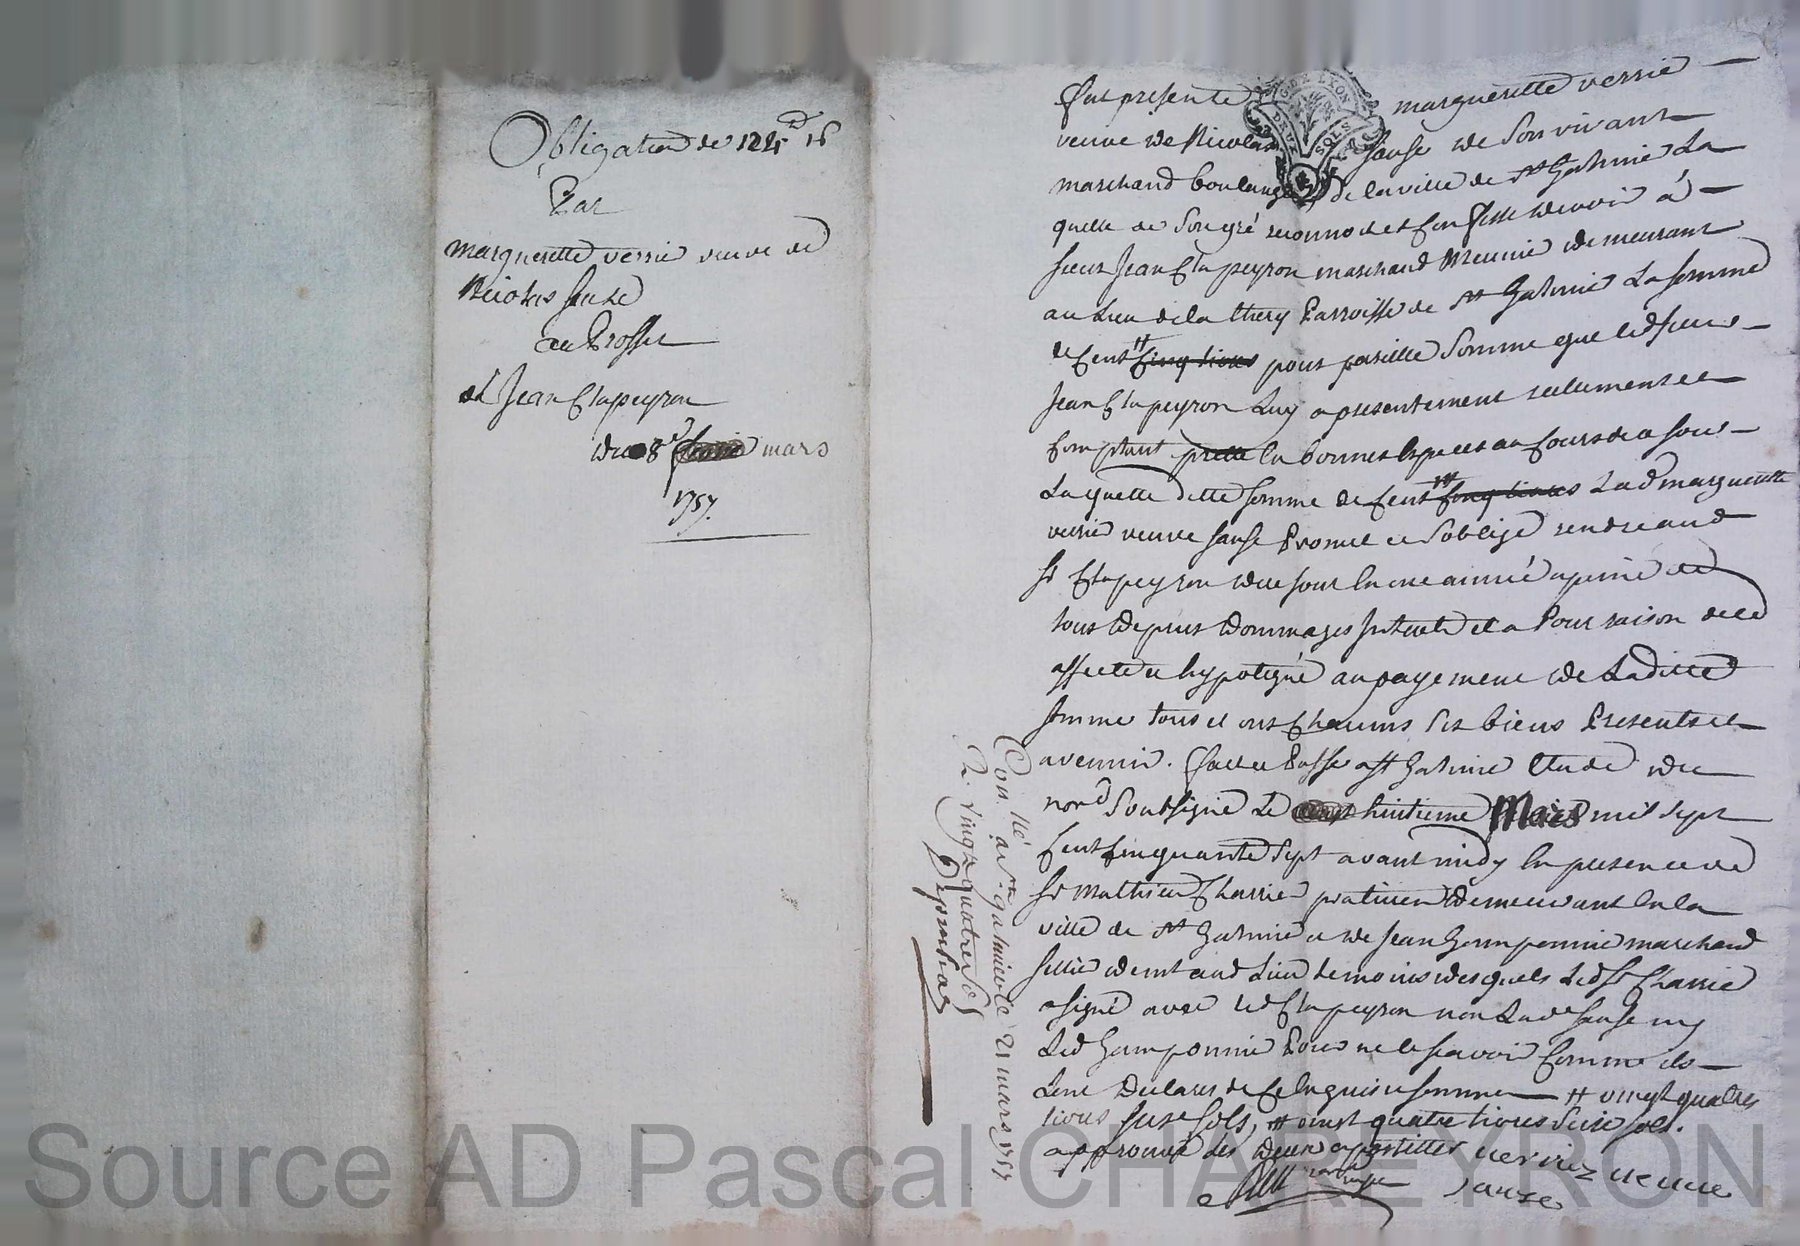 Obligation de 124ᵗᵗ 16
Par
margueritte verrié veuve de
Nicolas sause
au Proffit
de Jean Chapeyron
du 8ᵉ mars
1757.
Fut présente margueritte verrié
veuve de Nicolas sause de son vivant
marchand boulanger de la ville de st Galmié La
quelle de son gré reconnoit et Confesse devoir à
sieur Jean Chapeyron marchand Meunié demeurant
au Lieu de la thiery Parroisse de st Galmié La somme
de Cent # Cinq livres pour pareille somme que led sieur
Jean Chapeyron Luy a présentement réelement et
Comptant presté en bonnes espèces au Cours de ce jour
Laquelle ditte somme de Cent # Cinq livres Lad margueritte
verrié veuve sause Promet et s'oblige rendre aud
sr Chapeyron de ce jour en une année a peine de
tous depens dommages interets et a Pour raison de ce
affecté et hypotéqué au payement de Laditte
somme tous et uns Chacuns ses biens Présents et
avennir. Fait et Passé a st Galmié Etude du
nore soussigné Le huitième Mars mil sept
Cent Cinquante sept avant midy en presence de
sr Mathieu Charrié praticien demeurant en la
ville de st Galmié et de Jean Gomponnie marchand
sellié demt aud Lieu temoins desquels Led sr Charrié
a signé avec led Chapeyron non Lad sause ny
Led Gomponnie Pour ne le scavoir Comme ils
L'ont Déclaré de Ce Enquis et sommés # vingt quatre
livres seise sols, # vingt quatre livres seise sols.
approuvé des deux apostilles verriez veuve
sause
Con.llé a St galmier le 21 mars 1757
R. vingt quatre sols
Deponchas
Source AD Pascal CHAREYRON